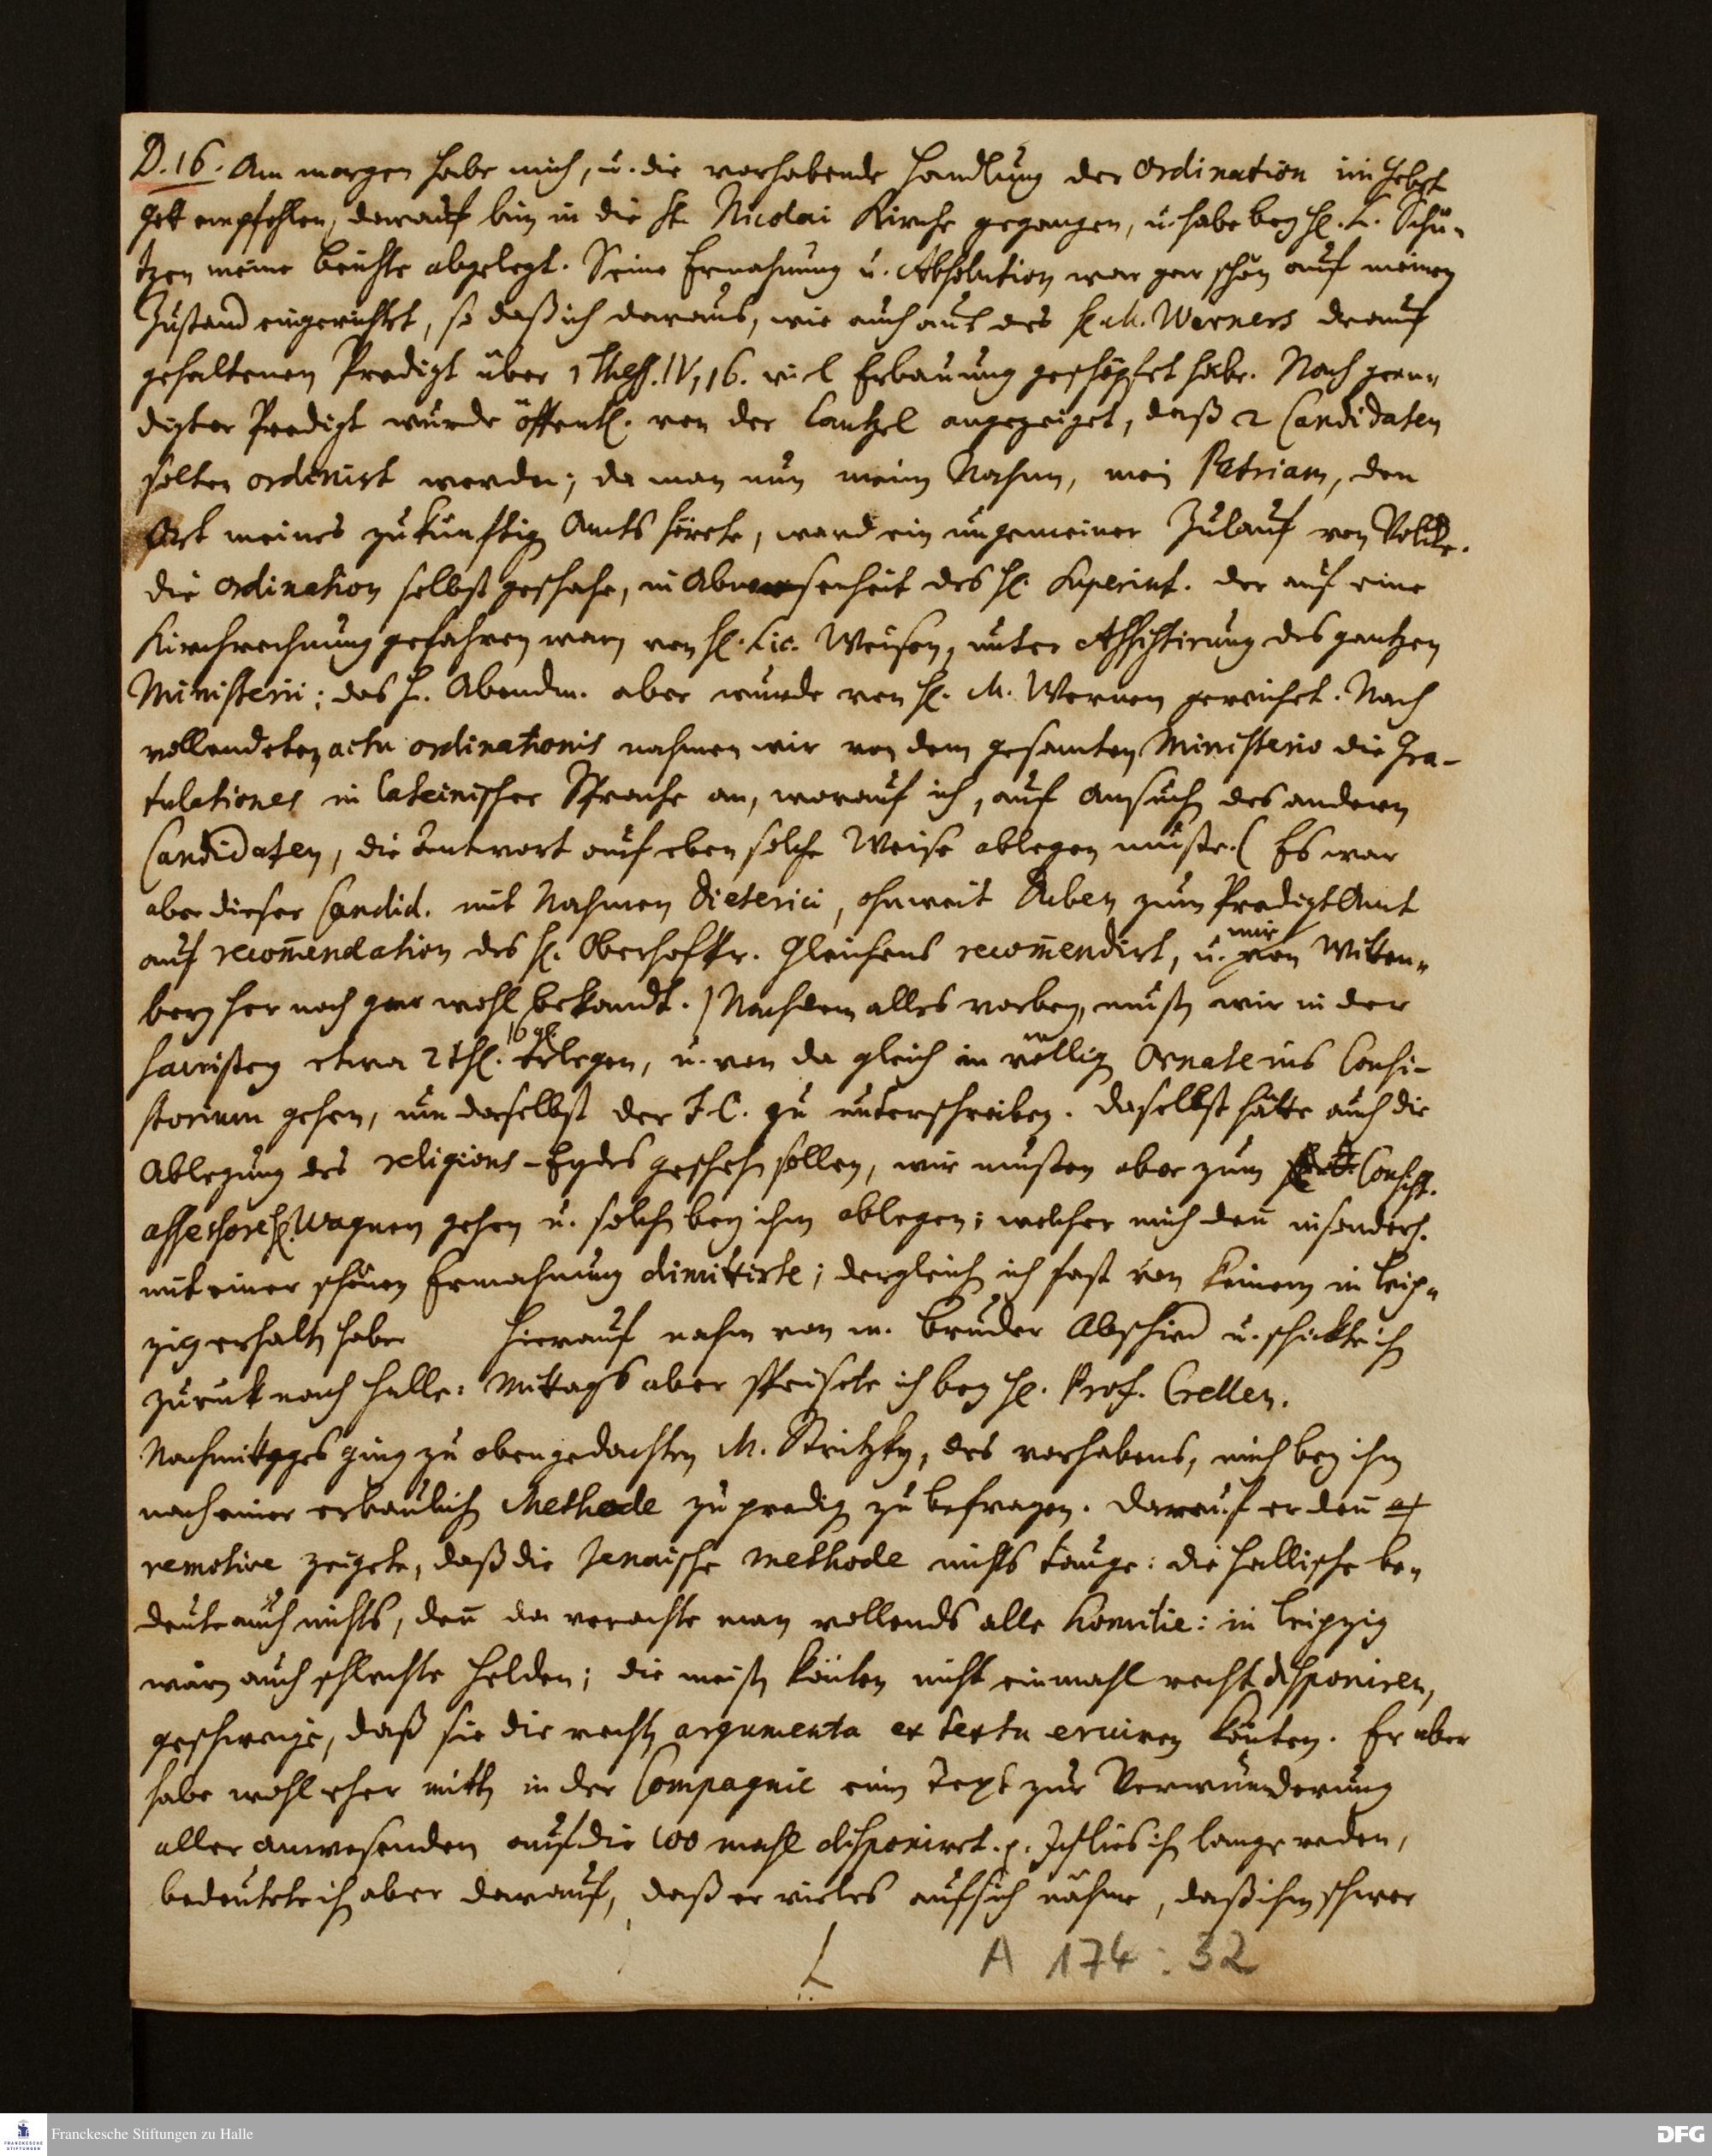 D. 16. Am morgen habe mich, u. die vorhabende Handlung der Ordination im Gebet
Gott empfohlen, darauf bin in die St. Nicolai Kirche gegangen, u. habe bey H. L. Schü-
tzen meine beichte abgelegt. Seine Ermahnung u. Absolution war gar schön auf meinen
Zustand eingerichtet, so daß ich daraus, wie auch aus des H. M. Werners darauf
gehaltenen Predigt über 1 Thess. IV, 16. viel Erbauung geschöpfet habe. Nach geen-
digter Predigt wurde öffentl. von der Cantzel angezeiget, daß 2 Candidaten
solten ordinirt werden; da man nun meinen Nahmen, mein Patriam, den
Ort meines zukünftig Amts hörete, ward ein ungemeiner Zulauf von Volcke.
die ordination selbst geschahe, in Abwesenheit des H. Superint. der auf eine
Kirchrechnung gefahren war, von H. Lic. Weisen, unter Assistirung des gantzen
Ministerii; das H. Abendm. aber wurde von H. M. Wernern gereichet. Nach
vollendeten actu ordinationis nahmen wir von dem gesamten Ministerio die Gra-
tulationes in lateinischer Sprache an, worauf ich, auf Ansuch des andern
Candidaten, die Antwort auf eben solche Weise ablegen muste. (Es war
aber dieser Candid. mit Nahmen Dieterici, ohnweit zum PredigtAmt
auf recom̅endation des H. Oberhofpr. Gleichens recom̅endirt, u. mir von Witten-
berg her noch gar wohl bekandt.) Nachdem alles vorbey, musten wir in der
Sacristey etwa 2 thl. 16 gl. erlegen, u. von da gleich in völlig Ornate ins Consi-
storium gehen, um daselbst der F. C. zu unterschreiben. daselbst hätte auch die
Ablegung des religions-Eydes geschehen sollen, wir musten aber zum Consist.
assessore H. Wagnern gehen u. solchen bey ihm ablegen; welcher mich den̅ insonderh.
mit einer schönen Ermahnung dimittirte; dergleichen ich fast von keinem in Leip-
zig erhalten habe hierauf nahm von m. bruder Abschied u. schickte ihn
zurück nach Halle: Mittags aber speisete ich bey H. Prof. Crellen.
Nachmittages ging zu obengedachten M. Stritzky, des vorhabens, mich bey ihm
nach einer erbaulich Methode zu predig zu befragen. darauf er den̅
remotive zeigete, daß die Jenaische methode nichts tauge: die Hallische be-
deute auch nichts, den̅ da verachte man vollends alle homilie: in Leipzig
wärn auch schlechte Helden; die meisten könten nicht einmahl recht disponiren,
geschweige, daß sie die rechten argumenta ex textu eruiren könten. Er aber
habe wohl eher mitten in der Compagnie einen Text zur Verwunderung
aller anwesenden auf die 100 mahl disponiret. p. Ich lies ihn lange reden,
bedeutete ihn aber darauf, daß er vieles auf sich nähme, daß ihm schwer
A 174 : 32
Franckesche Stiftungen zu Halle
DFG